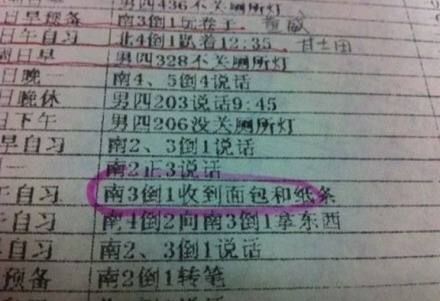 男四436不关厕所灯
日早预备 南3倒1玩卷子
日午自习 北4倒1趴着12:35
周日早 男四328不关厕所灯
日晚一 南4、5倒4说话
日晚休 男四203说话9:45
日下午 男四206没关厕所灯
早自习 南2、3倒1说话
一 南2正3说话
午自习 南3倒1收到面包和纸条
午自习 南4倒2向南3倒1拿东西
自习 南2、3倒1说话
预备 南2倒1转笔